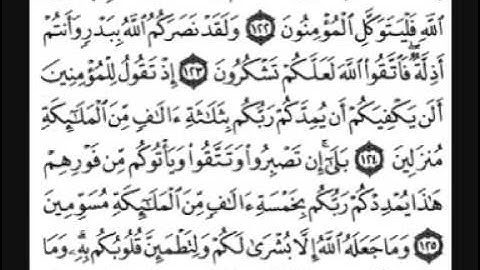 ٱللَّهِ فَلْيَتَوَكَّلِ ٱلْمُؤْمِنُونَ ١٢٢ وَلَقَدْ نَصَرَكُمُ ٱللَّهُ بِبَدْرٍ وَأَنتُمْ
أَذِلَّةٌ ۖ فَٱتَّقُوا۟ ٱللَّهَ لَعَلَّكُمْ تَشْكُرُونَ ١٢٣ إِذْ تَقُولُ لِلْمُؤْمِنِينَ
أَلَن يَكْفِيَكُمْ أَن يُمِدَّكُمْ رَبُّكُم بِثَلَٰثَةِ ءَالَٰفٍ مِّنَ ٱلْمَلَٰٓئِكَةِ
مُنزَلِينَ ١٢٤ بَلَىٰٓ ۚ إِن تَصْبِرُوا۟ وَتَتَّقُوا۟ وَيَأْتُوكُم مِّن فَوْرِهِمْ
هَٰذَا يُمْدِدْكُمْ رَبُّكُم بِخَمْسَةِ ءَالَٰفٍ مِّنَ ٱلْمَلَٰٓئِكَةِ مُسَوِّمِينَ
١٢٥ وَمَا جَعَلَهُ ٱللَّهُ إِلَّا بُشْرَىٰ لَكُمْ وَلِتَطْمَئِنَّ قُلُوبُكُم بِهِۦ ۗ وَمَا